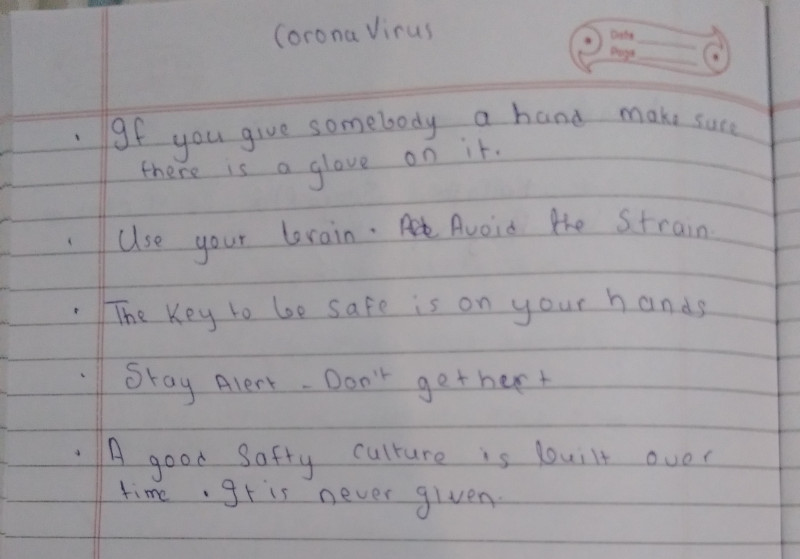 Corona Virus
Date
Page
• If you give somebody a hand make sure
there is a glove on it.
• Use your brain. Avoid the strain.
• The key to be safe is on your hands
• Stay Alert - Don't get hert
• A good Safty culture is built over
time. It is never given.